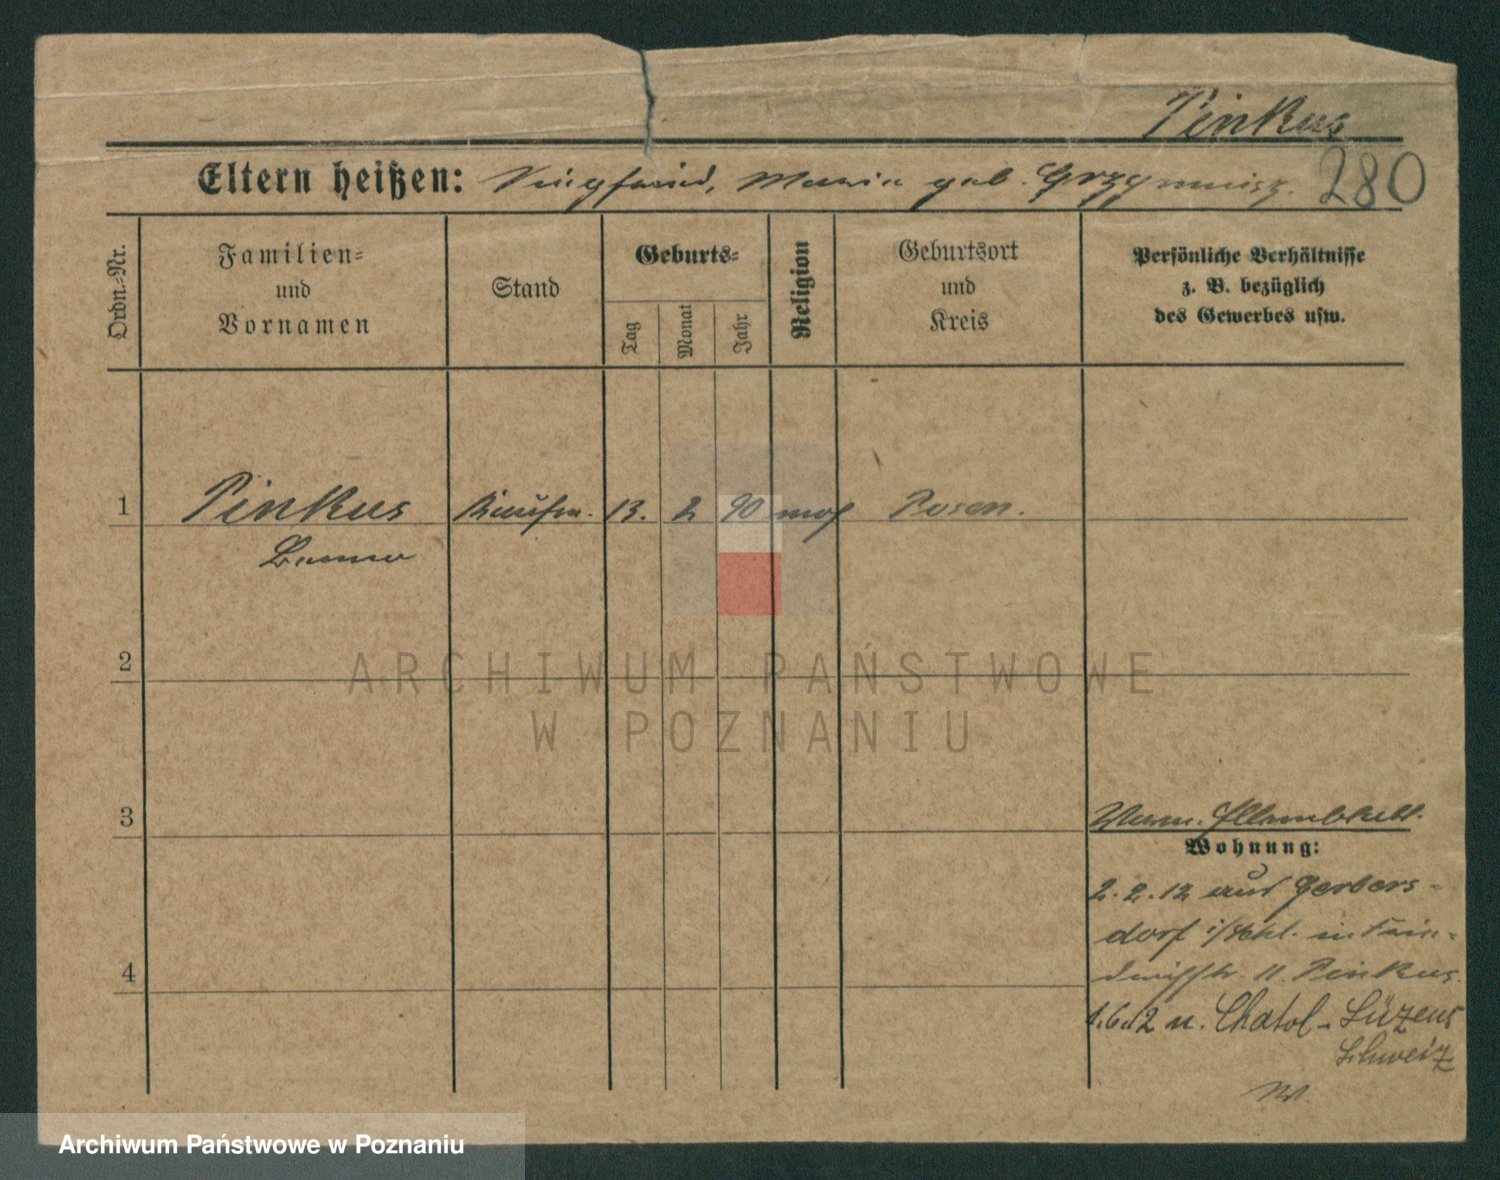 Pinkus
Eltern heißen: Siegfried, Maria geb. 280
Ordn.-Nr.
Familien-
und
Vornamen
Stand
Geburts-
Tag
Monat
Jahr
Religion
Geburtsort
und
Kreis
Persönliche Verhältnisse
z. B. bezüglich
des Gewerbes usw.
1 Pinkus Kaufm. 13. 2 90 mos Posen.
Benno
2
ARCHIWUM PAŃSTWOWE
W POZNANIU
3
Wohnung:
2. 2. 12 aus Gerbers-
dorf i/Schl.
4
11. Pinkus.
1.6.12 n.
Schweiz
Archiwum Państwowe w Poznaniu